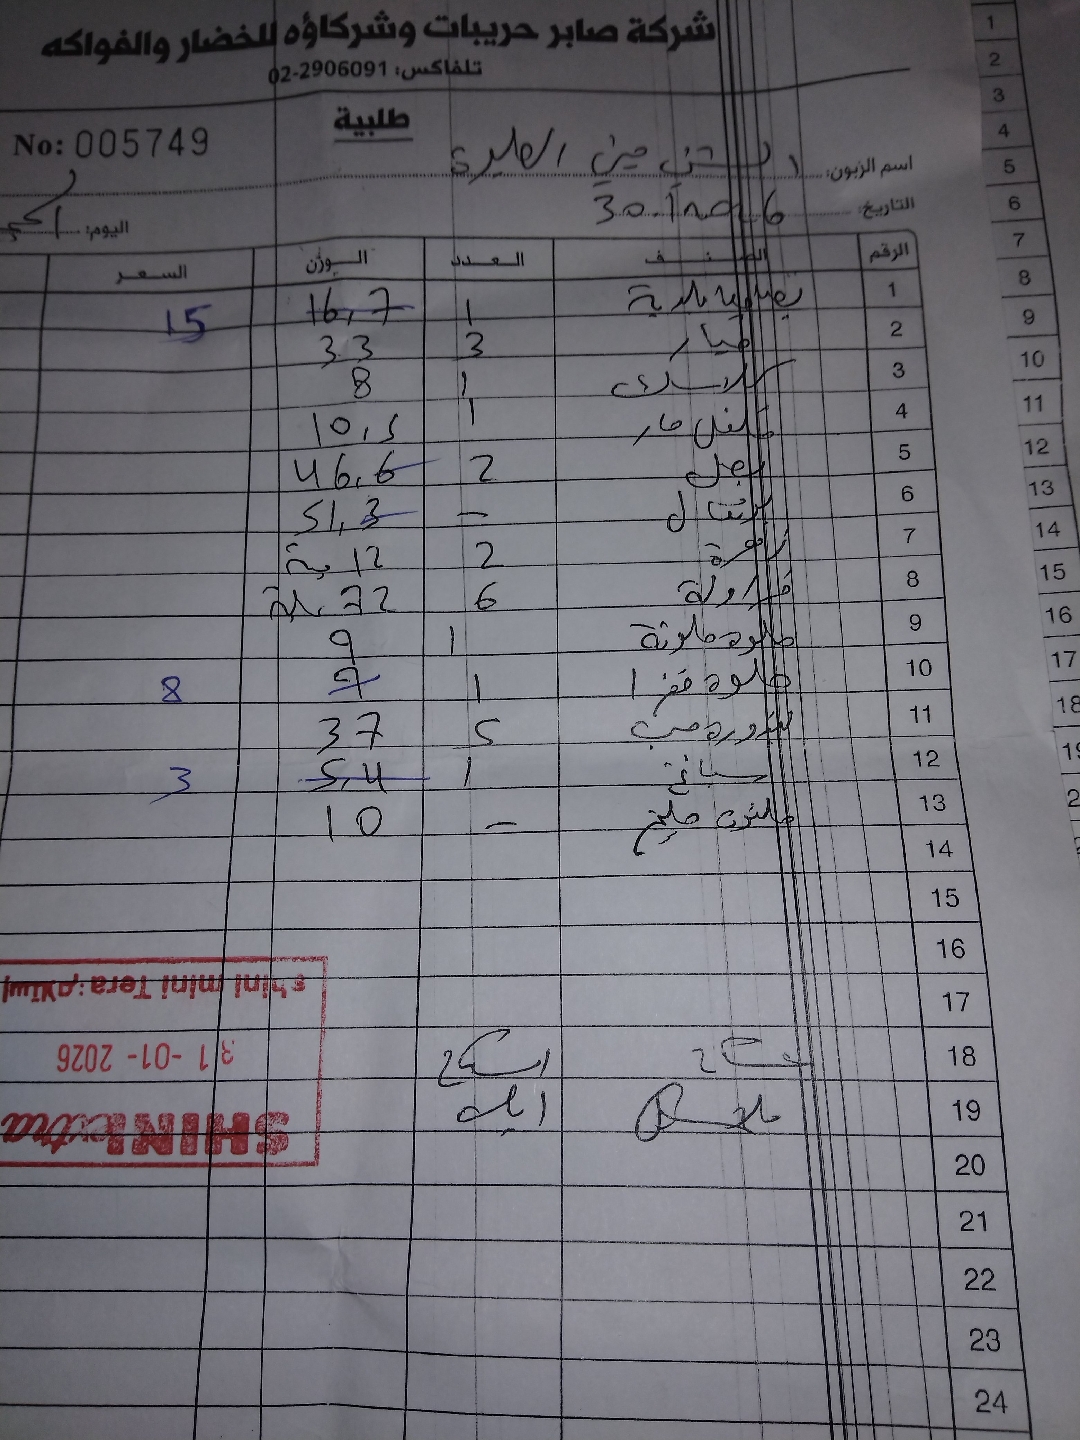 شركة صابر حريبات وشركاؤه للخضار والفواكه
تلفاكس: 02-2906091
طلبية
No: 005749
اسم الزبون:
التاريخ:
اليوم:
الرقم الصنف العدد الوزن السعر
1 بلدية 1 16,7 15
2 خيار 3 33
3 1 8
4 فلفل حار 1 10,5
5 بصل 2 46,6
6 برتقال - 51,3
7 زهرة 2 12
8 فراولة 6 72
9 حلوة ملونة 1 9
10 حلوة 1 9 8
11 بندورة حب 5 37
12 سبانخ 1 5,4 3
13 - 10
14
15
16
17
18
19
20
21
22
23
24
shini mini Tera
31-01-2026
SHINI extra
1
2
3
4
5
6
7
8
9
10
11
12
13
14
15
16
17
18